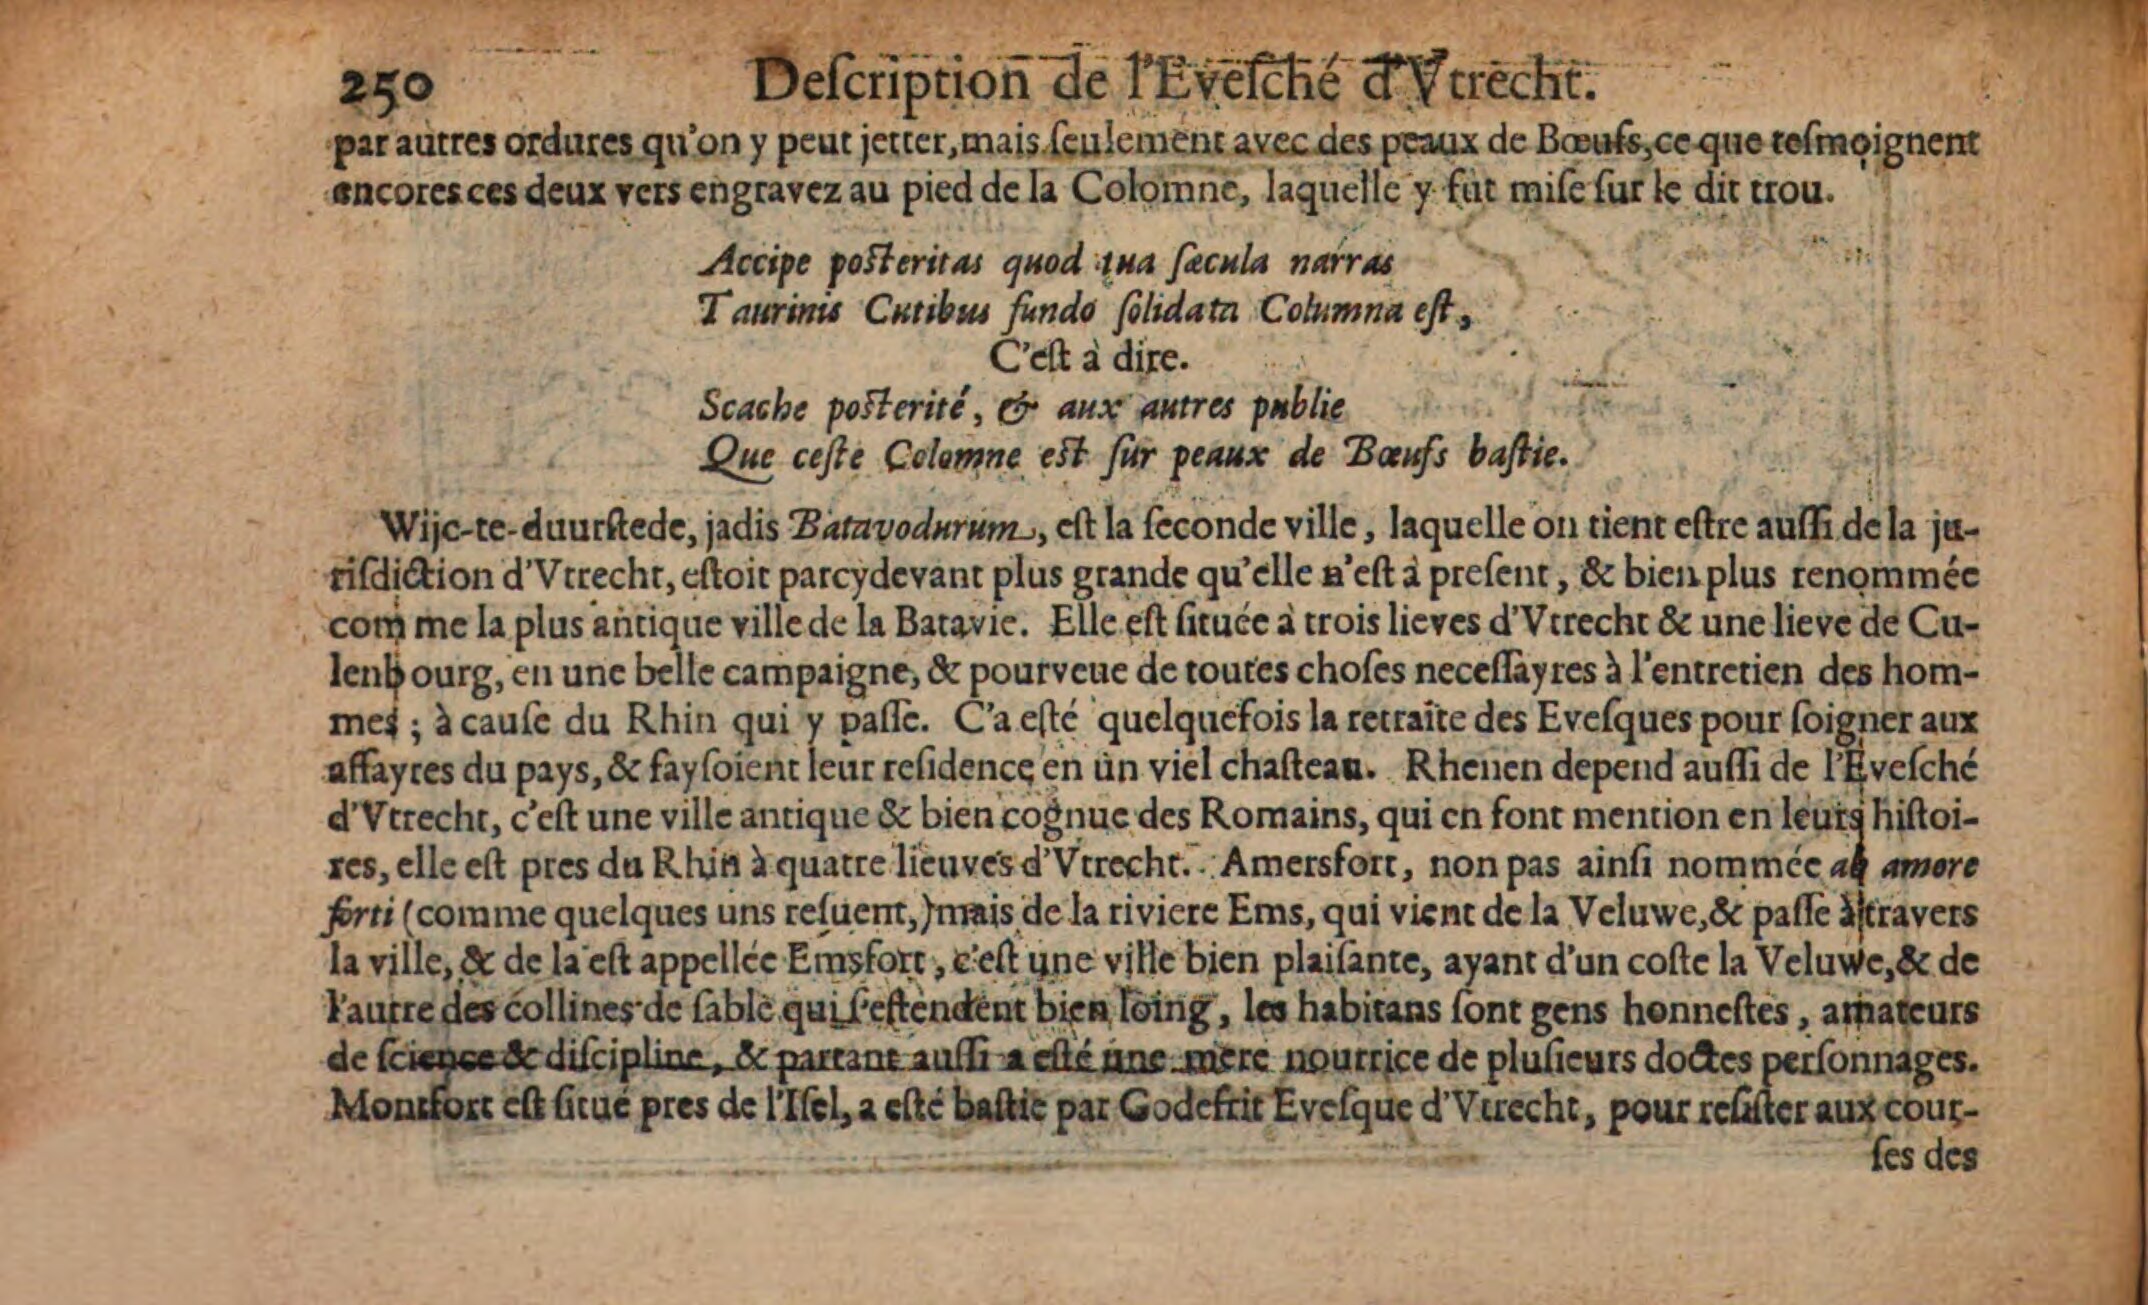 250 Deſcription de l'Eveſché d'Vtrecht.
par autres ordures qu'on y peut jetter, mais ſeulement avec des peaux de Bœufs, ce que teſmoignent
encores ces deux vers engravez au pied de la Colomne, laquelle y fut miſe ſur le dit trou.
Accipe poſteritas quod tua ſæcula narras
Taurinis Cutibus fundo ſolidata Columna eſt,
C'eſt à dire.
Scache poſterité, & aux autres publie
Que ceſte Colomne eſt ſur peaux de Bœufs baſtie.
Wijc-te-duurſtede, jadis Batavodurum, eſt la ſeconde ville, laquelle on tient eſtre auſſi de la ju-
riſdiction d'Vtrecht, eſtoit parcydevant plus grande qu'elle n'eſt à preſent, & bien plus renommée
comme la plus antique ville de la Batavie. Elle eſt ſituée à trois lieves d'Vtrecht & une lieve de Cu-
lenbourg, en une belle campaigne, & pourveue de toutes choſes neceſſayres à l'entretien des hom-
mes ; à cauſe du Rhin qui y paſſe. C'a eſté quelquefois la retraite des Eveſques pour ſoigner aux
affayres du pays, & fayſoient leur reſidence en un viel chaſteau. Rhenen depend auſſi de l'Eveſché
d'Vtrecht, c'eſt une ville antique & bien cognue des Romains, qui en font mention en leurs hiſtoi-
res, elle eſt pres du Rhin à quatre lieuves d'Vtrecht. Amersfort, non pas ainſi nommée ab amore
forti (comme quelques uns reſuent,) mais de la riviere Ems, qui vient de la Veluwe, & paſſe à travers
la ville, & de la eſt appellée Emsfort, c'eſt une ville bien plaiſante, ayant d'un coſte la Veluwe, & de
l'autre des collines de ſable qui s'eſtendent bien loing, les habitans ſont gens honneſtes, amateurs
de ſcience & diſcipline, & partant auſſi a eſté une mere nourrice de pluſieurs doctes perſonnages.
Montfort eſt ſitué pres de l'Iſel, a eſté baſtie par Godefrit Eveſque d'Vtrecht, pour reſiſter aux cour-
ſes des